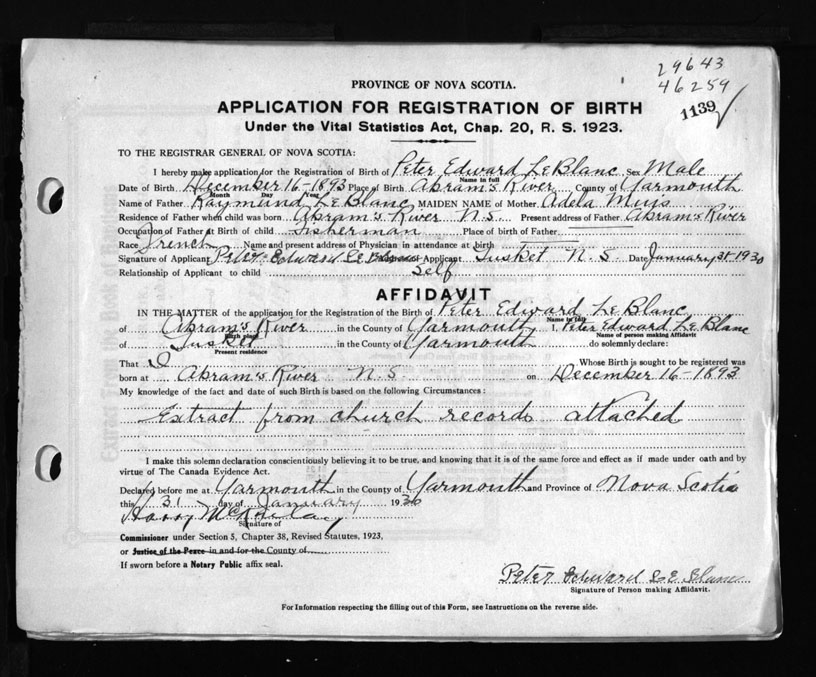 29643
46259
1139
PROVINCE OF NOVA SCOTIA.
APPLICATION FOR REGISTRATION OF BIRTH
Under the Vital Statistics Act, Chap. 20, R. S. 1923.
TO THE REGISTRAR GENERAL OF NOVA SCOTIA:
I hereby make application for the Registration of Birth of Peter Edward LeBlanc Sex Male
Name in full
Date of Birth December 16-1893 Place of Birth Abram's River County of Yarmouth
Month Day Year
Name of Father Raymond LeBlanc MAIDEN NAME of Mother Adela Muis
Residence of Father when child was born Abram's River N.S. Present address of Father Abram's River
Occupation of Father at Birth of child Fisherman Place of birth of Father
Race French Name and present address of Physician in attendance at birth
Signature of Applicant Peter Edward Le Blanc Applicant Tusket N.S. Date January 31-1930
Relationship of Applicant to child Self
AFFIDAVIT
IN THE MATTER of the application for the Registration of the Birth of Peter Edward LeBlanc
Name in full
of Abram's River in the County of Yarmouth I, Peter Edward LeBlanc
Birth place Name of person making Affidavit
of Tusket in the County of Yarmouth do solemnly declare:
Present residence
That I Whose Birth is sought to be registered was
born at Abram's River N.S. on December 16-1893
My knowledge of the fact and date of such Birth is based on the following Circumstances:
Extract from church records attached
I make this solemn declaration conscientiously believing it to be true, and knowing that it is of the same force and effect as if made under oath and by
virtue of The Canada Evidence Act.
Declared before me at Yarmouth in the County of Yarmouth and Province of Nova Scotia
this 31 day of January 1930
Harry
Signature of
Commissioner under Section 5, Chapter 38, Revised Statutes, 1923,
or Justice of the Peace in and for the County of
If sworn before a Notary Public affix seal.
Peter Edward Le Blanc
Signature of Person making Affidavit.
For Information respecting the filling out of this Form, see Instructions on the reverse side.